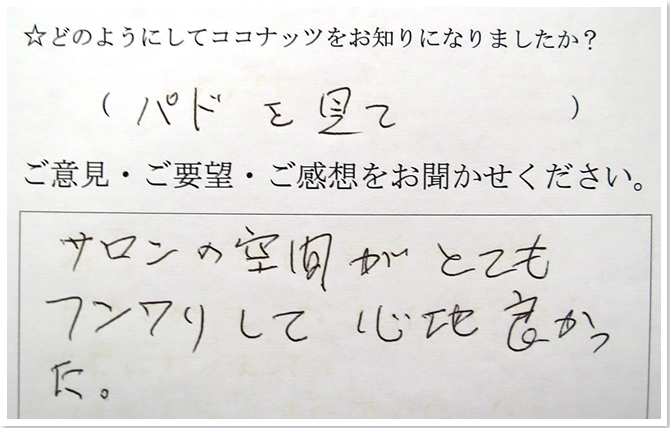 ☆どのようにしてココナッツをお知りになりましたか？
（ パド を見て ）
ご意見・ご要望・ご感想をお聞かせください。
サロンの空間がとても
フンワリして心地良かっ
た。